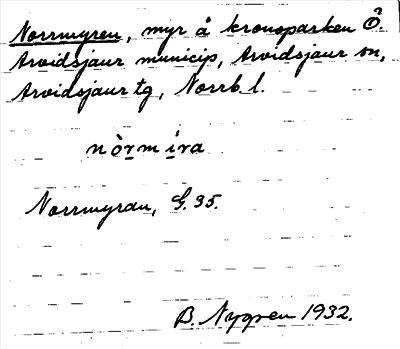 Norrmyren, myr å kronoparken Ö.
Arvidsjaur municip, Arvidsjaur sn,
Arvidsjaur tg, Norrb. l.
nòrmira
Norrmyran, G. 35.
B. Nygren 1932.